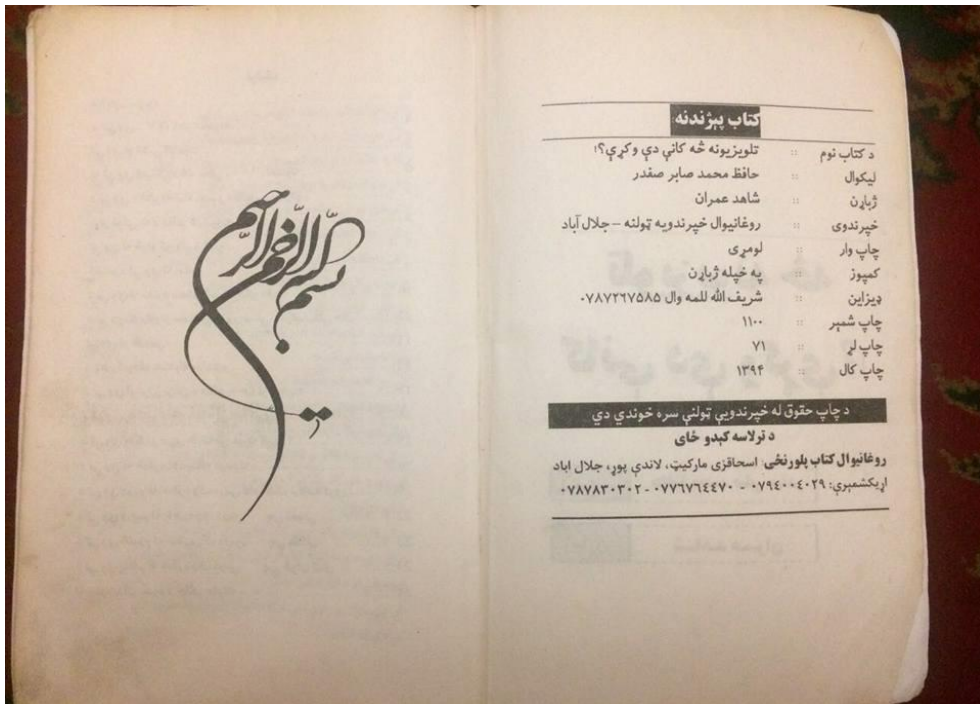 کتاب پېژندنه:
د کتاب نوم :: تلويزيونه څه کاڼې دې وکړې؟!
ليکوال :: حافظ محمد صابر صفدر
ژباړن :: شاهد عمران
خپرندوی :: روغانيوال خپرندويه ټولنه – جلال آباد
چاپ وار :: لومړی
کمپوز :: په خپله ژباړن
ډيزاين :: شريف الله للمه وال ۰۷۸۷۲۶۷۵۸۵
چاپ شمېر :: ۱۱۰۰
چاپ لړ :: ۷۱
چاپ کال :: ۱۳۹۴
د چاپ حقوق له خپرندويې ټولنې سره خوندي دي
د ترلاسه کېدو ځای
روغانيوال کتاب پلورنځی: اسحاقزی مارکيټ، لاندې پوړ، جلال اباد
اړيکشمېرې: ۰۷۹٤۰۰٤۰۲۹ - ۰۷۷٦۷٦٤٤۷۰ - ۰۷۸۷۸۳۰۳۰۲
بسم الله الرحمن الرحيم